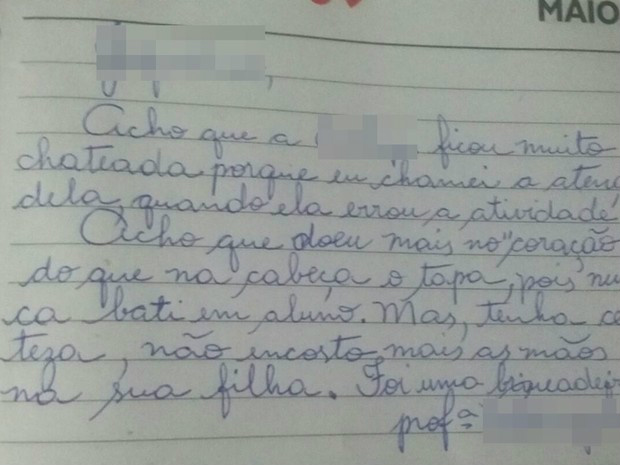 MAIO
Acho que a ficou muito
chateada porque eu chamei a atenç
dela, quando ela errou a atividade
Acho que doeu mais no "coração
do que na cabeça o tapa, pois nu
ca bati em aluno. Mas, tenha ce
teza, não encosto mais as mãos
na sua filha. Foi uma brincadeir
profª